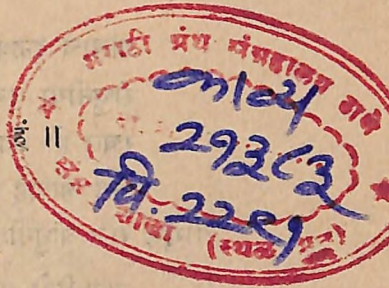 मराठी ग्रंथ संग्रहालय ठाणे
काव्य
२१३८३
वि. २२९१
शाखा (स्थळ
॥